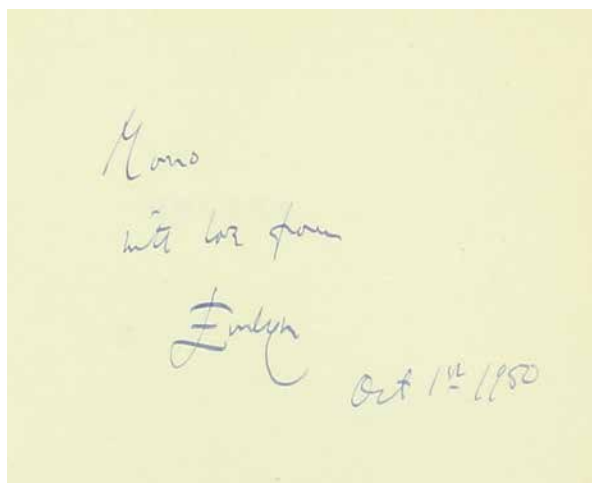 Momo
with love from
Evelyn
Oct 1st 1950